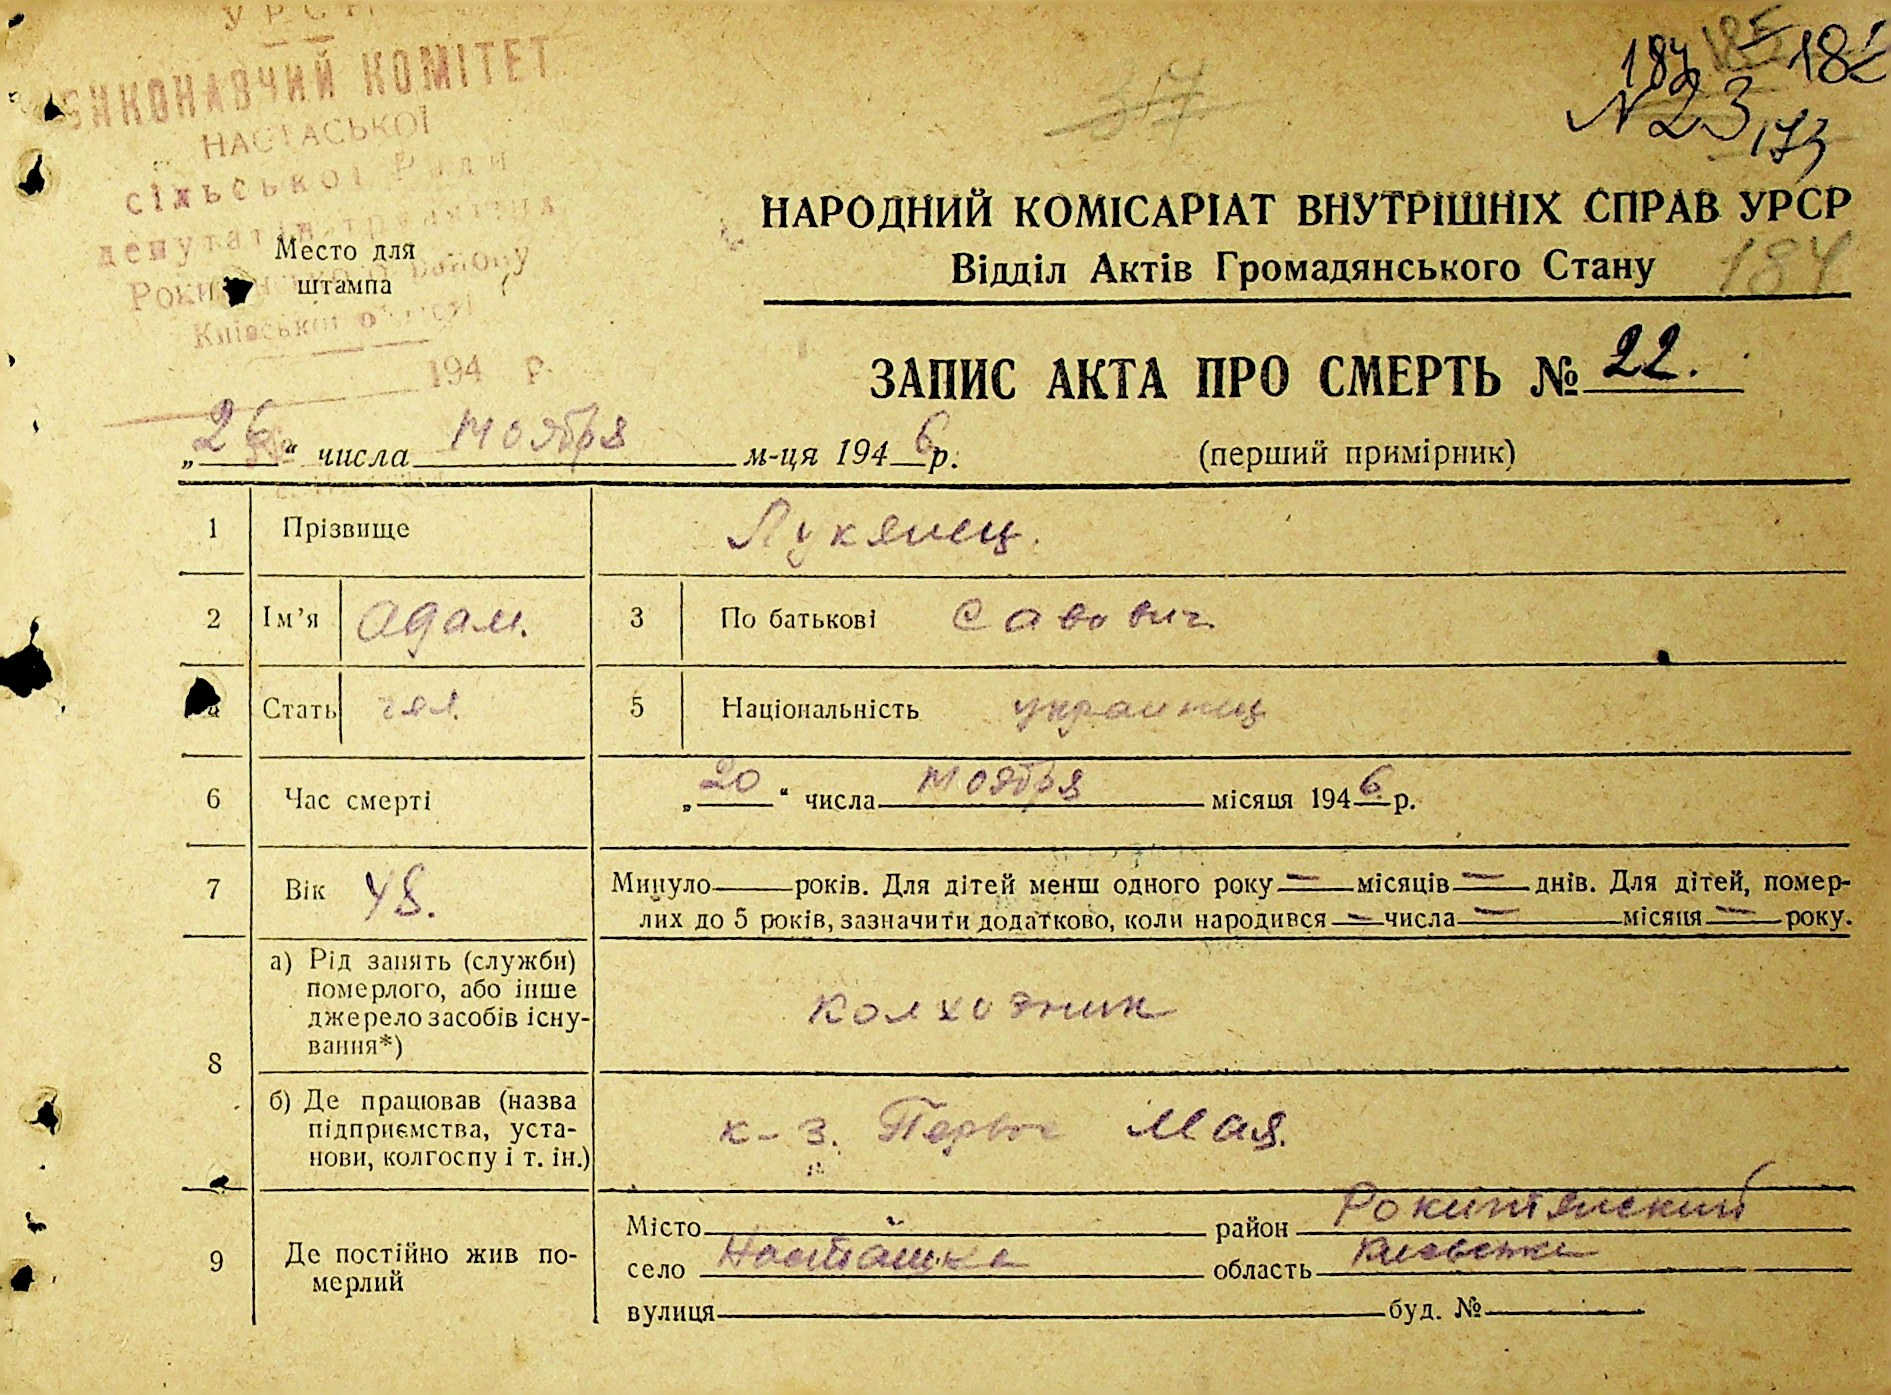 УРСР
ВИКОНАВЧИЙ КОМІТЕТ
НАСТАСЬКОЇ
сільської Ради
депутатів трудящих
Рокитнянського району
Київської області
194 р.
Место для
штампа
37
184 185 182
N 23 173
НАРОДНИЙ КОМІСАРІАТ ВНУТРІШНІХ СПРАВ УРСР
Відділ Актів Громадянського Стану
184
ЗАПИС АКТА ПРО СМЕРТЬ № 22.
„26“ числа Ноября м-ця 1946 р.
(перший примірник)
1 Прізвище Лукянец.
2 Ім’я Адам. 3 По батькові Савович
4 Стать чол. 5 Національність украинец
6 Час смерті „20“ числа Ноября місяця 1946 р.
7 Вік 48. Минуло — років. Для дітей менш одного року — місяців — днів. Для дітей, помер-
лих до 5 років, зазначити додатково, коли народився — числа — місяця — року.
8 а) Рід занять (служби)
померлого, або інше
джерело засобів існу-
вання*)
колхозник
б) Де працював (назва
підприємства, уста-
нови, колгоспу і т. ін.)
к-з. Первое Мая.
9 Де постійно жив по-
мерлий
Місто район Рокитянский
село Насташка область Киевская
вулиця буд. №